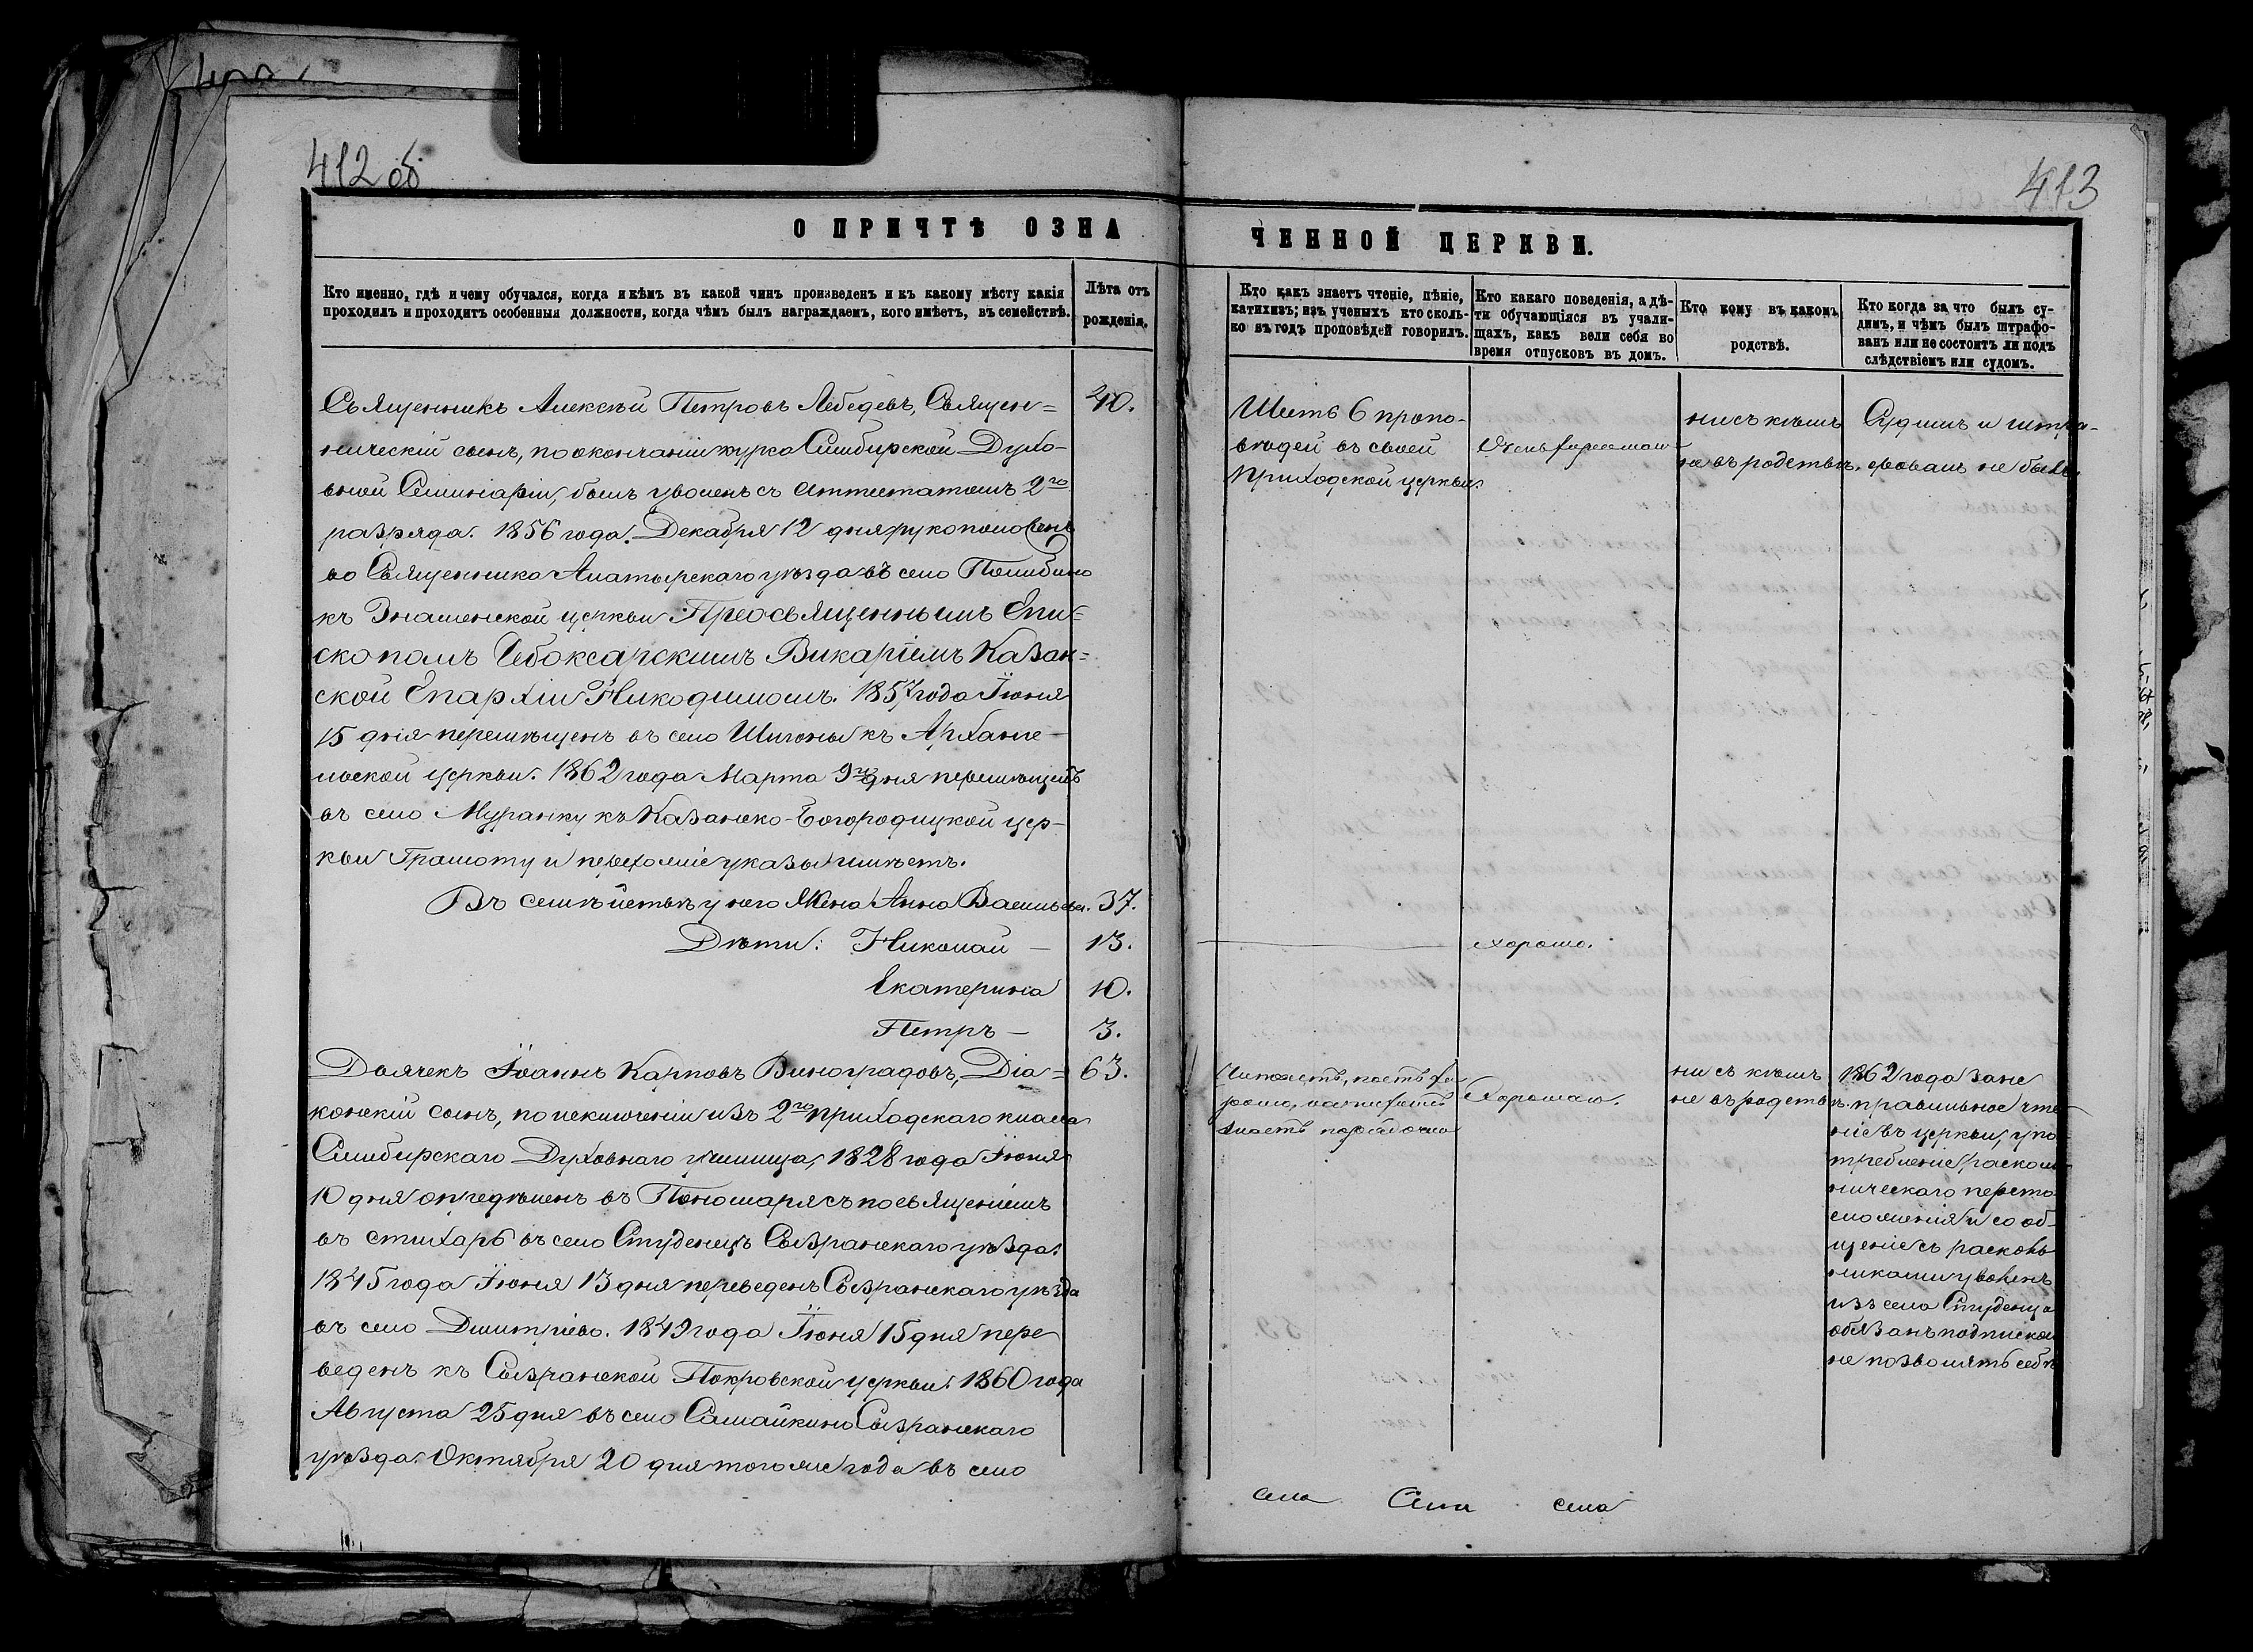 412 об
413
О ПРИЧТѢ ОЗНА
ЧЕННОЙ ЦЕРКВИ.
Кто именно, гдѣ и чему обучался, когда и кѣмъ въ какой чинъ произведенъ и къ какому мѣсту какія
проходилъ и проходитъ особенныя должности, когда чѣмъ былъ награждаемъ, кого имѣетъ, въ семействѣ.
Лѣта отъ
рожденія.
Кто какъ знаетъ чтеніе, пѣніе,
катихизъ; изъ ученыхъ кто сколь-
ко въ годъ проповѣдей говорилъ.
Кто какаго поведенія, а дѣ-
ти обучающіяся въ учали-
щахъ, какъ вели себя во
время отпусковъ въ домъ.
Кто кому въ какомъ
родствѣ.
Кто когда за что былъ су-
димъ, и чѣмъ былъ штрафо-
ванъ или не состоитъ ли подъ
слѣдствіемъ или судомъ.
Священникъ Алексѣй Петровъ Лебедевъ, Священ=
ническій сынъ, по окончаніи курса Симбирской Духо-
вной Семинаріи, былъ уволенъ съ аттестатомъ 2го
разряда. 1856 года. Декабря 12 дня рукоположенъ
во Священника Алатырскаго уѣзда въ село
къ Знаменской церкви Преосвященнымъ Епи=
скопомъ Чебоксарскимъ Викаріемъ Казан=
ской Епархіи Никодимомъ. 1857 года Іюня
15 дня перемѣщенъ въ село Шигоны къ Арханге-
льской церкви. 1862 года Марта 9го дня перемѣщенъ
въ село Муранку къ Казанско-Богородицкой цер-
кви Грамоту и перехожіе указы имѣетъ.
Въ семѣйствѣ у него Жена Анна Васильева. 37.
Дѣти: Николай — 13.
Екатерина 10.
Петръ — 3.
40.
Шесть 6 пропо-
вѣдей въ своей
Приходской церкви.
Очень хорошаго
ни съ кѣмъ
не въ родствѣ.
Судимъ и штра-
фованъ не былъ.
хорошо.
Дьячекъ Іоаннъ Карповъ Виноградовъ, Діа= 63.
конскій сынъ, по исключеніи изъ 2го приходскаго класса
Симбирскаго Духовнаго училища, 1828 года Іюня
10 дня опредѣленъ въ Пономаря съ посвященіемъ
въ стихарь въ село Студенецъ Сызранскаго уѣзда.
1845 года Іюня 13 дня переведенъ Сызранскаго уѣзда
въ село Дмитріево. 1849 года Іюня 15 дня пере
веденъ къ Сызранской Покровской церкви. 1860 года
Августа 25 дня въ село Самайкино Сызранскаго
уѣзда. Октября 20 дня того же года въ село
Читаетъ, поетъ хо
рошо, катихизъ
знаетъ порядочно
Хорошаго.
ни съ кѣмъ
не въ родствѣ.
1862 года за не
правильное чте
ніе въ церкви, упо
требленіе расколь
ническаго персто
сложенія и сооб-
щеніе съ расколь
никами уволенъ
изъ села Студенца
обязанъ подпиской
не позволять себѣ
села Села села